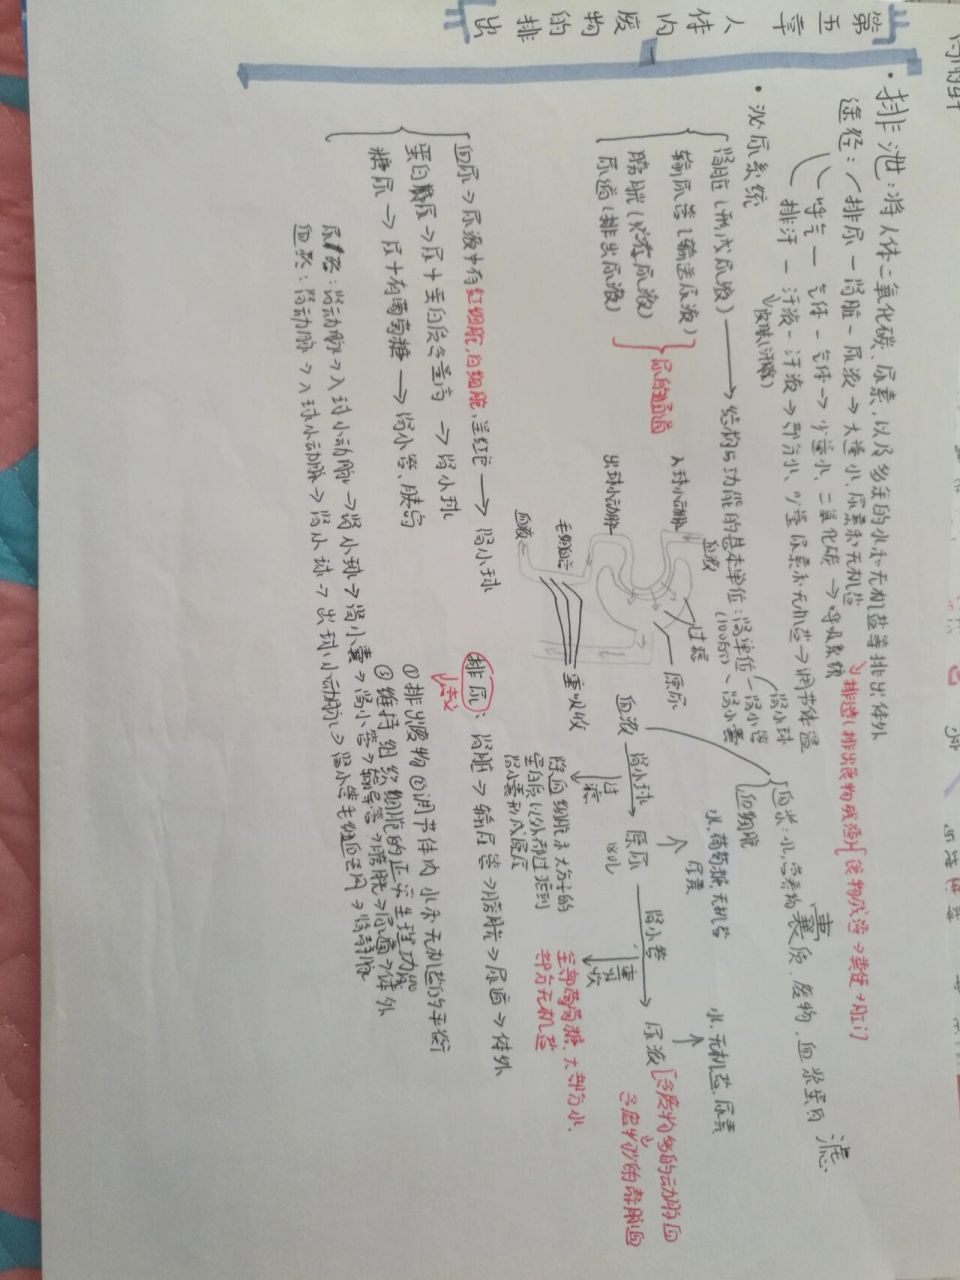 第五章 人体内废物的排出
·排泄：将人体二氧化碳、尿素，以及多余的水和无机盐等排出体外
途径：排尿—肾脏—尿液→大量水、尿素和无机盐
呼气—气体—气体→少量水、二氧化碳→呼吸系统
排汗—汗液—汗液→部分水、少量尿素和无机盐→调节体温
皮肤(汗腺)
排遗(排出食物残渣)
食物残渣→粪便→肛门
·泌尿系统
肾脏(形成尿液)→结构与功能的基本单位：肾单位
(100万)
肾小球
肾小管
肾小囊
输尿管(输送尿液)
膀胱(贮存尿液)
尿道(排出尿液)
尿的通道
血浆：水，营养物质、废物、血浆蛋白
滤
血细胞
入球小动脉
出球小动脉
血液
过滤
原尿
毛细血管
血液
重吸收
血液 肾小球→ 原尿 肾小管→ 尿液
过滤
180L
重吸收
水、葡萄糖、无机盐
尿素
水、无机盐、尿素
含废物多的动脉血
含废物少的静脉血
除血细胞和大分子的
蛋白质以外都过滤到
肾小囊形成原尿
全部葡萄糖、大部分水、
部分无机盐
血尿→尿液中有红细胞，白细胞，呈红色→肾小球
蛋白尿→尿中蛋白质含量高→肾小球
糖尿→尿中有葡萄糖→肾小管、胰岛
排尿：肾脏→输尿管→膀胱→尿道→体外
意义
①排出废物 ②调节体内水和无机盐的平衡
③维持组织细胞的正常生理功能
尿液：肾动脉→入球小动脉→肾小球→肾小囊→肾小管→输尿管→膀胱→尿道→体外
血液：肾动脉→入球小动脉→肾小球→出球小动脉→肾小管毛细血管网→肾静脉